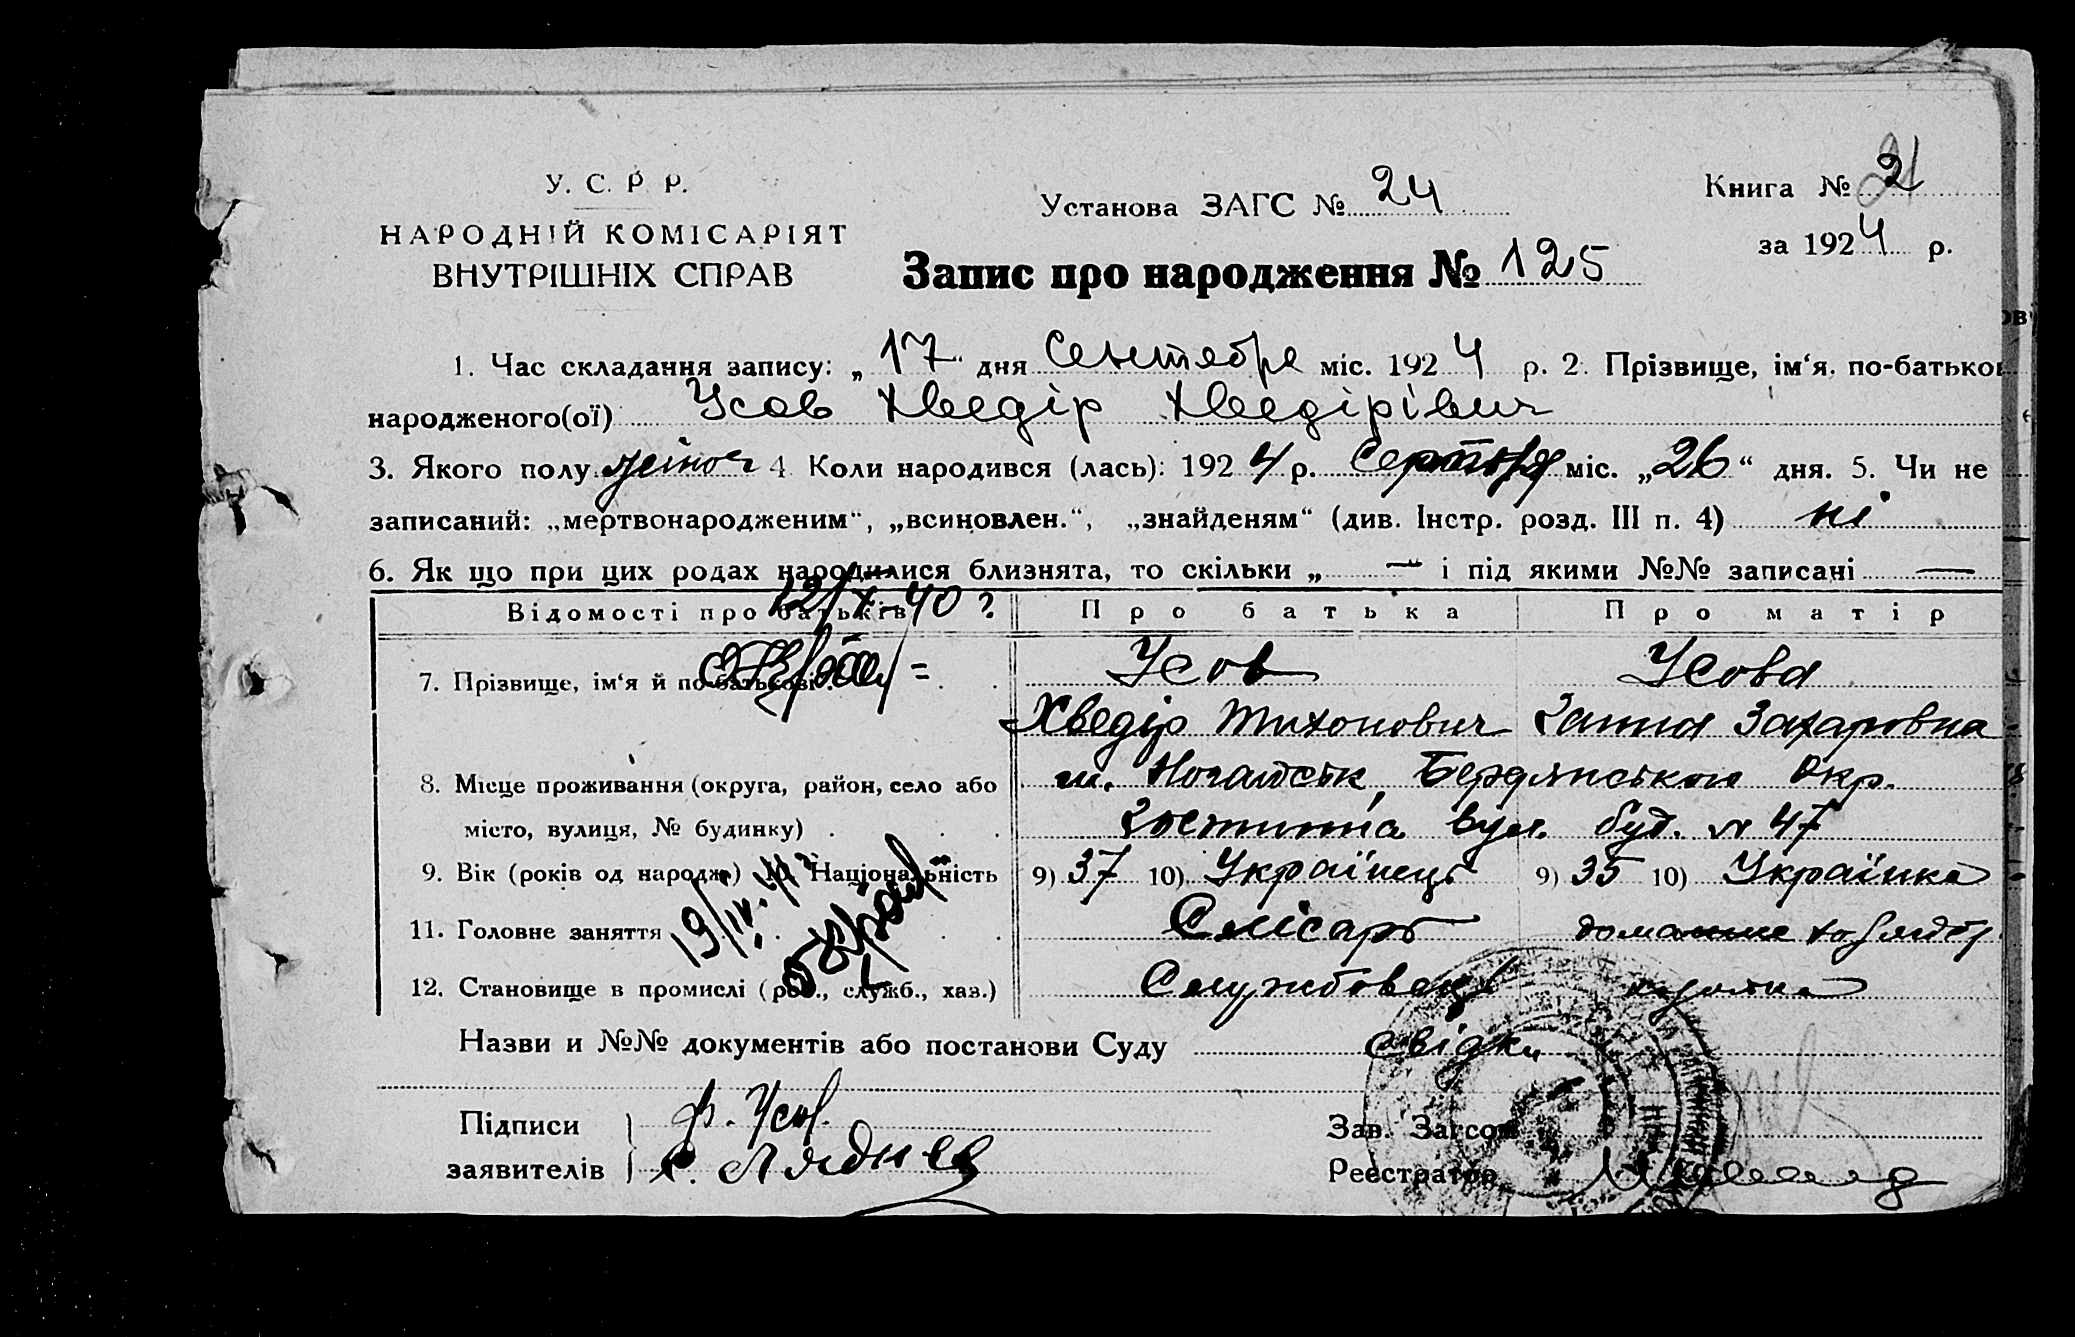 У. С. Р. Р.
НАРОДНІЙ КОМІСАРІЯТ
ВНУТРІШНІХ СПРАВ
Установа ЗАГС № 24
Книга № 21
за 1924 р.
Запис про народження № 125
1. Час складання запису: „17“ дня Сентября міс. 1924 р. 2. Прізвище, ім‘я, по-батькові
народженого(ої) Усов Хведір Хведірівич
3. Якого полу 4. Коли народився (лась): 1924 р. міс. „26“ дня. 5. Чи не
записаний: „мертвонародженим“, „всиновлен.“, „знайденям“ (див. Інстр. розд. III п. 4) ні
6. Як що при цих родах народилися близнята, то скільки „ — “ і під якими №№ записані —
Відомості про батьків Про батька Про матір
12/X-40
7. Прізвище, ім‘я й по-батькові Усов Усова
Хведір Тихонович Захаровна
8. Місце проживання (округа, район, село або м. Ногайськ, Бердянської Окр.
місто, вулиця, № будинку) вул. буд. № 47
9. Вік (років од народж.) 10. Національність 9) 37 10) Українець 9) 35 10) Українка
11. Головне заняття Слісарь
19/IV-41
12. Становище в промислі (роб., служб., хаз.) Службовець
Назви и №№ документів або постанови Суду свідки
Підписи ф. Усов
заявителів
Зав. Загсом
Реєстратор